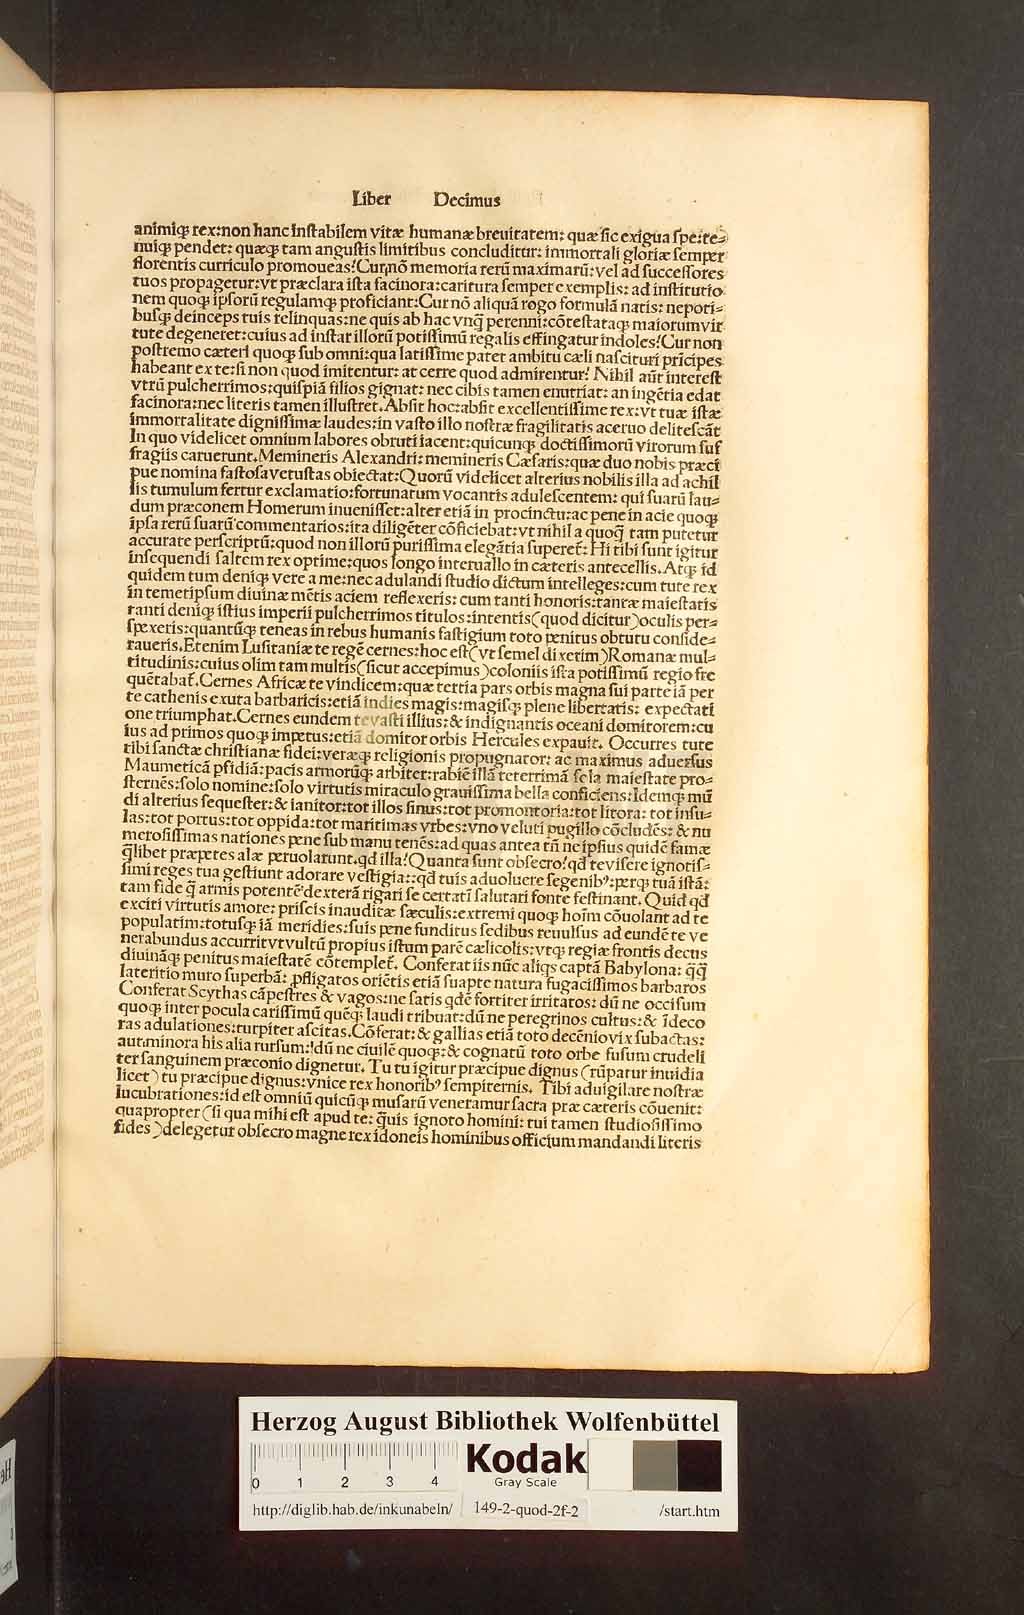 Liber Decimus
animiqꝫ rex:non hanc instabilem vitæ humanæ breuitatem: quæ sic exigua spe:te⸗
nuiqꝫ pendet: quæqꝫ tam angustis limitibus concluditur: immortali gloriæ semper
florentis curriculo promoueas?Cur,nō memoria rerū maximarū:vel ad successores
tuos propagetur:vt præclara ista facinora:caritura semper exemplis: ad institutio
nem quoqꝫ ipsorū regulamqꝫ proficiant:Cur nō aliquā rogo formulā natis: nepoti⸗
busqꝫ deinceps tuis relinquas:ne quis ab hac vnq̄ perenni:cōtestataqꝫ maiorum vir
tute degeneret:cuius ad instar illorū potissimū regalis effingatur indoles?Cur non
postremo cæteri quoqꝫ sub omni:qua latissime patet ambitu cæli nascituri prīcipes
habeant ex te:si non quod imitentur: at cerre quod admirentur? Nihil aūt interest
vtrū pulcherrimos:quispiā filios gignat: nec cibis tamen enutriat: an ingētia edat
facinora:nec literis tamen illustret.Absit hoc:absit excellentissime rex:vt tuæ istæ
immortalitate dignissimæ laudes:in vasto illo nostræ fragilitatis aceruo delitescāt
In quo videlicet omnium labores obruti iacent:quicunqꝫ doctissimorū virorum suf
fragiis caruerunt.Memineris Alexandri: memineris Cæsaris:quæ duo nobis præci
pue nomina fastosa vetustas obiectat:Quorū videlicet alterius nobilis illa ad achil
lis tumulum fertur exclamatio:fortunatum vocantis adulescentem: qui suarū lau⸗
dum præconem Homerum inuenisset:alter etiā in procinctu:ac pene in acie quoqꝫ
ipsa rerū suarū commentarios:ita diligēter cōficiebat:vt nihil a quoq̄ tam putetur
accurate perscriptū:quod non illorū purissima elegātia superet̄: Hi tibi sunt igitur
insequendi saltem rex optime:quos longo interuallo in cæteris antecellis.Atqꝫ id
quidem tum deniqꝫ vere a me:nec adulandi studio dictum intelleges:cum tute rex
in temetipsum diuinæ mētis aciem reflexeris: cum tanti honoris:tantæ maiestatis
ranti deniqꝫ istius imperii pulcherrimos titulos:intentis(quod dicitur)oculis per⸗
spexeris:quantūqꝫ teneas in rebus humanis fastigium toto penitus obtutu conside⸗
raueris.Etenim Lusitaniæ te regē cernes:hoc est(vt semel dixerim)Romanæ mul⸗
titudinis:cuius olim tam multis(sicut accepimus)coloniis ista potissimū regio fre
quētabat̄.Cernes Africæ te vindicem:quæ tertia pars orbis magna sui parte iā per
te cathenis exuta barbaricis:etiā indies magis:magisqꝫ plene libertatis: expectati
one triumphat.Cernes eundem te vasti illius:& indignantis oceani domitorem:cu
ius ad primos quoqꝫ impetus:etiā domitor orbis Hercules expauit. Occurres tute
tibi sanctæ christianæ fidei:veræqꝫ religionis propugnator: ac maximus aduersus
Maumeticā pfidiā:pacis armorūqꝫ arbiter:rabiē illā teterrimā sola maiestate pro⸗
sternēs:solo nomine:solo virtutis miraculo grauissima bella conficiens:Idemqꝫ mū
di alterius sequester:& ianitor:tot illos sinus:tot promontoria:tot litora: tot insu⸗
las:tot portus:tot oppida:tot maritimas vrbes:vno veluti pugillo cōcludēs: & nu
merosissimas nationes pene sub manu tenēs:ad quas antea tn̄ ne ipsius quidē famæ
q̄libet præpetes alæ peruolarunt.qd illa? Quanta sunt obsecro?qd te visere ignotis⸗
simi reges tua gestiunt adorare vestigia::qd tuis aduoluere se genibꝰ:perqꝫ tuā istā:
tam fide q̄ armis potentē dexterā rigari se certati salutari fonte festinant. Quid qd
exciti virtutis amore: priscis inauditæ sæculis:extremi quoqꝫ hoīm cōuolant ad te
populatim:totusqꝫ iā meridies:suis pene funditus sedibus reuulsus ad eundē te ve
nerabundus accurrit vt vultū propius istum parē cælicolis:vtqꝫ regiæ frontis decus
diuināqꝫ penitus maiestatē cōtemplet̄. Conferat iis nūc aliqs captā Babylona: q̄q̄
lateritio muro superbā: ꝓfligatos oriētis etiā suapte natura fugacissimos barbaros
Conferat Scythas cāpestres & vagos:ne satis qdē fortiter irritatos: dū ne occisum
quoqꝫ inter pocula carissimū quēqꝫ laudi tribuat:dū ne peregrinos cultus:& īdeco
ras adulationes:turpiter ascitas.Cōferat:& gallias etiā toto decēnio vix subactas:
aut,minora his alia rursum:!dū ne ciuilē quoqꝫ:& cognatū toto orbe fusum crudeli
ter sanguinem præconio dignetur. Tu tu igitur præcipue dignus (rūpatur inuidia
licet) tu præcipue dignus:vnice rex honoribꝰ sempiternis. Tibi aduigilare nostræ
lucubrationes:id est omniū quicūqꝫ musarū veneramur sacra præ cæteris cōuenit:
quapropter(si qua mihi est apud te: q̄uis ignoto homini: tui tamen studiosissimo
fides)delegetur obsecro magne rex idoneis hominibus officium mandandi literis
Herzog August Bibliothek Wolfenbüttel
0 1 2 3 4
Kodak
Gray Scale
http://diglib.hab.de/inkunabeln/ 149-2-quod-2f-2 /start.htm